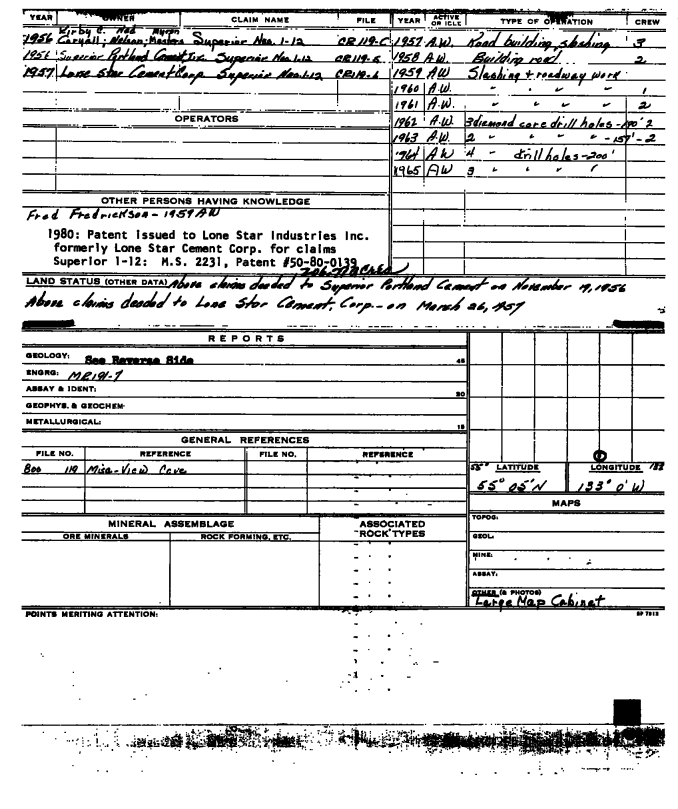 YEAR OWNER CLAIM NAME FILE YEAR ACTIVE OR IDLE TYPE OF OPERATION CREW
Kirby C. Ned Myron
1956 Nelson; Masters Superior Nos. 1-12 CR 119-C 1957 A.W. Road building, slashing 3
1956 Superior Portland Cement, Inc. Superior Nos. 1-12 CR 119-5 1958 A.W. Building road 2
1957 Lone Star Cement Corp. Superior Nos. 1-12 CR 119-6 1959 A.W. Slashing + roadway work
1960 A.W. " " " 1
1961 A.W. " " " 2
OPERATORS
1962 A.W. 3 diamond core drill holes - 2
1963 A.W. 2 " " " " - 157' - 2
1964 A.W. 4 " drill holes - 200'
1965 A.W. 3 " " "
OTHER PERSONS HAVING KNOWLEDGE
Fred Fredrickson - 1959 AW
1980: Patent issued to Lone Star Industries Inc.
formerly Lone Star Cement Corp. for claims
Superior 1-12: M.S. 2231, Patent #50-80-0139
Acres
LAND STATUS (OTHER DATA) Above claims deeded to Superior Portland Cement on November 19, 1956
Above claims deeded to Lone Star Cement, Corp. - on March 26, 1957
REPORTS
GEOLOGY: See Reverse Side 45
ENGRG: MR191-7
ASSAY & IDENT: 30
GEOPHYS. & GEOCHEM.
METALLURGICAL: 15
GENERAL REFERENCES
FILE NO. REFERENCE FILE NO. REFERENCE
Boo 119 Misc-View Cove
55° LATITUDE LONGITUDE
55° 05' N 133° 0' W
MAPS
TOPOG:
GEOL:
MINE:
ASSAY:
OTHER (& PHOTOS)
Large Map Cabinet
MINERAL ASSEMBLAGE ASSOCIATED ROCK TYPES
ORE MINERALS ROCK FORMING, ETC.
POINTS MERITING ATTENTION: SP 7913